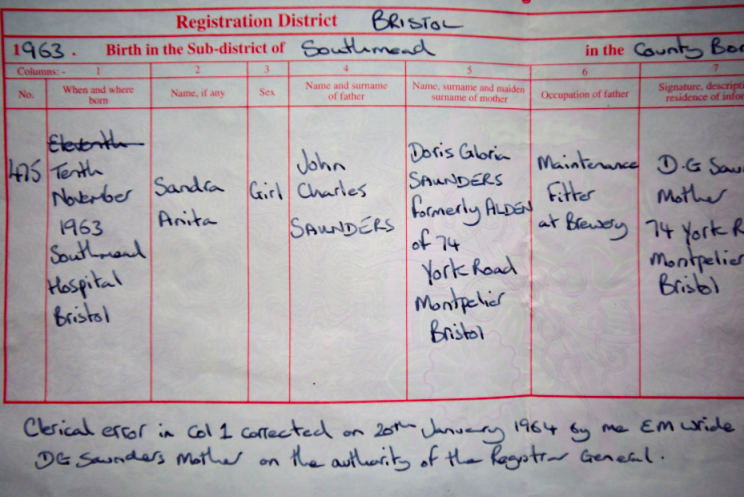 Registration District BRISTOL
1963. Birth in the Sub-district of Southmead in the County Bor
Columns:- 1 2 3 4 5 6 7
No. When and where born Name, if any Sex Name and surname of father Name, surname and maiden surname of mother Occupation of father Signature, descripti residence of infor
475
Eleventh
Tenth
November
1963
Southmead
Hospital
Bristol
Sandra
Anita
Girl
John
Charles
SAUNDERS
Doris Gloria
SAUNDERS
formerly ALDEN
of 74
York Road
Montpelier
Bristol
Maintenance
Fitter
at Brewery
D.G Sau
Mother
74 York R
Montpelier
Bristol
Clerical error in Col 1 corrected on 20th January 1964 by me EM Wride
DG Saunders Mother on the authority of the Registrar General.